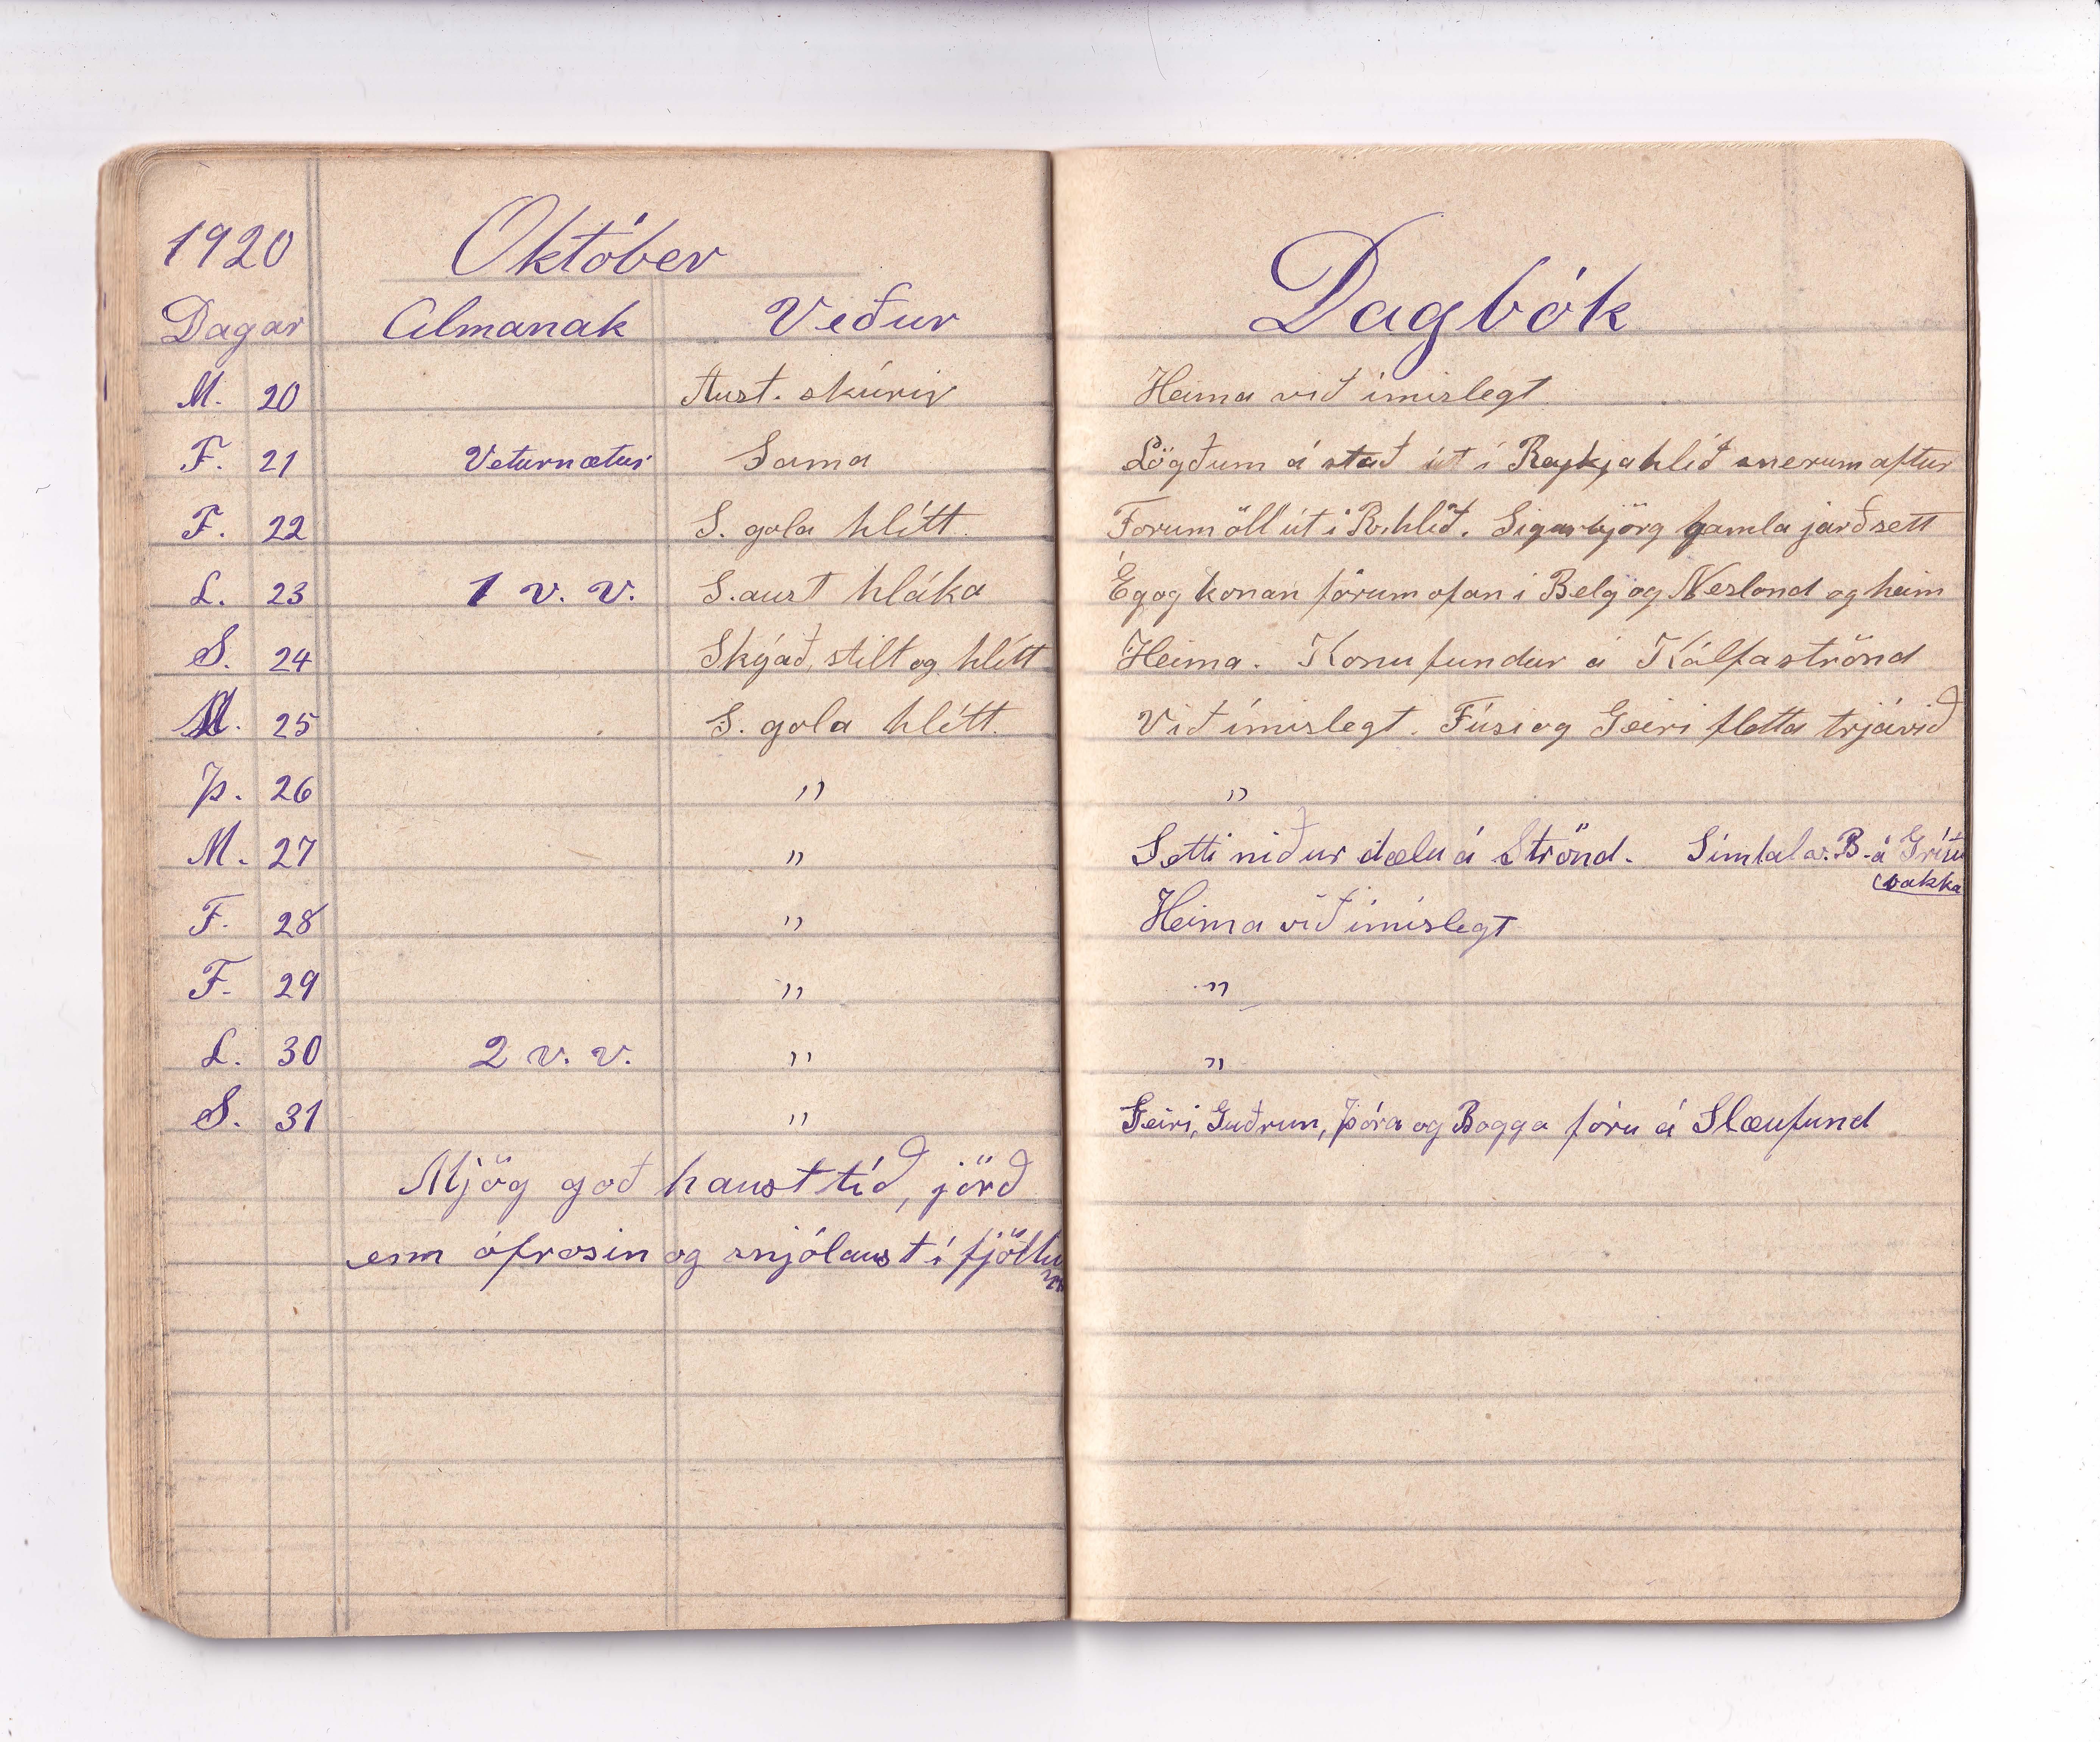 1920 Október
Dagar Almanak Veður
M. 20 Aust. skúrir
F. 21 Veturnætur Sama
F. 22 S. gola hlítt
L. 23 1 v. v. S.aust hláka
S. 24 Skýað, stilt og hlítt
M. 25 S. gola hlítt.
Þ. 26 "
M. 27 "
F. 28 "
F. 29 "
L. 30 2 v. v. "
S. 31 "
Mjög goð hausttíð, jörð
enn ófrosin og snjólaust í fjöllu
m
Dagbók
Heima við ímislegt
Lögðum á stað út í Reykjahlíð snerum aftur
Forum öll út í R.hlíð. Sigurbjörg gamla jarðsett
Ég og konan fórum ofan í Belg og Neslond og heim
Heima. Konufundur á Kálfaströnd
Við ímislegt. Fúsi og Geiri fletta trjávið
"
Setti niður dælu á Strönd. Símtal v. B. á Grítu
bakka
Heima við ímislegt
"
"
Geiri, Guðrun, Þóra og Bogga fóru á Slæufund